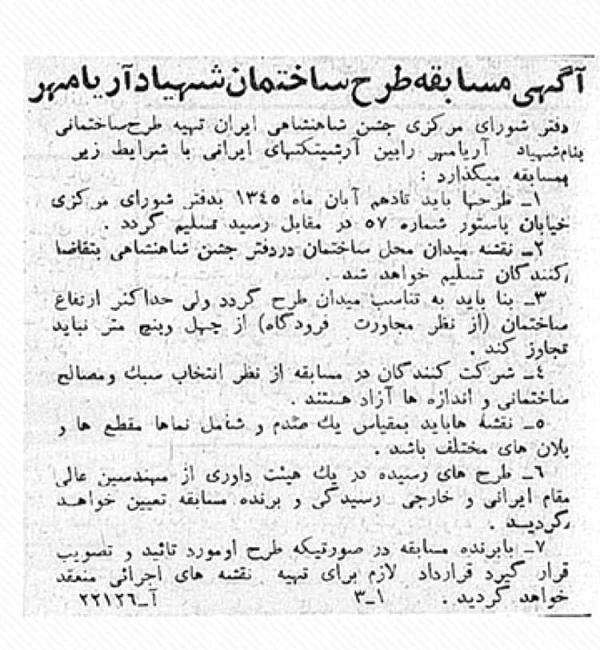 آگهی مسابقه طرح ساختمان شهیاد آریامهر
دفتر شورای مرکزی جشن شاهنشاهی ایران تهیه طرح ساختمانی
بنام شهیاد آریامهر رابین آرشیتکتهای ایرانی با شرایط زیر
بمسابقه میگذارد :
۱ـ طرحها باید تا دهم آبان ماه ۱۳٤۵ بدفتر شورای مرکزی
خیابان پاستور شماره ۵۷ در مقابل رسید تسلیم گردد .
۲ـ نقشه میدان محل ساختمان دردفتر جشن شاهنشاهی بتقاضا
کنندگان تسلیم خواهد شد .
۳ـ بنا باید به تناسب میدان طرح گردد ولی حداکثر ارتفاع
ساختمان (از نظر مجاورت فرودگاه) از چهل وپنج متر نباید
تجاوز کند .
٤ـ شرکت کنندگان در مسابقه از نظر انتخاب سبك ومصالح
ساختمانی و اندازه ها آزاد هستند .
۵ـ نقشه هاباید بمقیاس یك صدم و شامل نماها مقطع ها و
پلان های مختلف باشد .
۶ـ طرح های رسیده در یك هیئت داوری از مهندسین عالی
مقام ایرانی و خارجی رسیدگی و برنده مسابقه تعیین خواهد
گردید .
۷ـ بابرنده مسابقه در صورتیکه طرح اومورد تائید و تصویب
قرار گیرد قرارداد لازم برای تهیه نقشه های اجرائی منعقد
خواهد گردید . ۱ـ۳ آـ۲۲۱۲۶